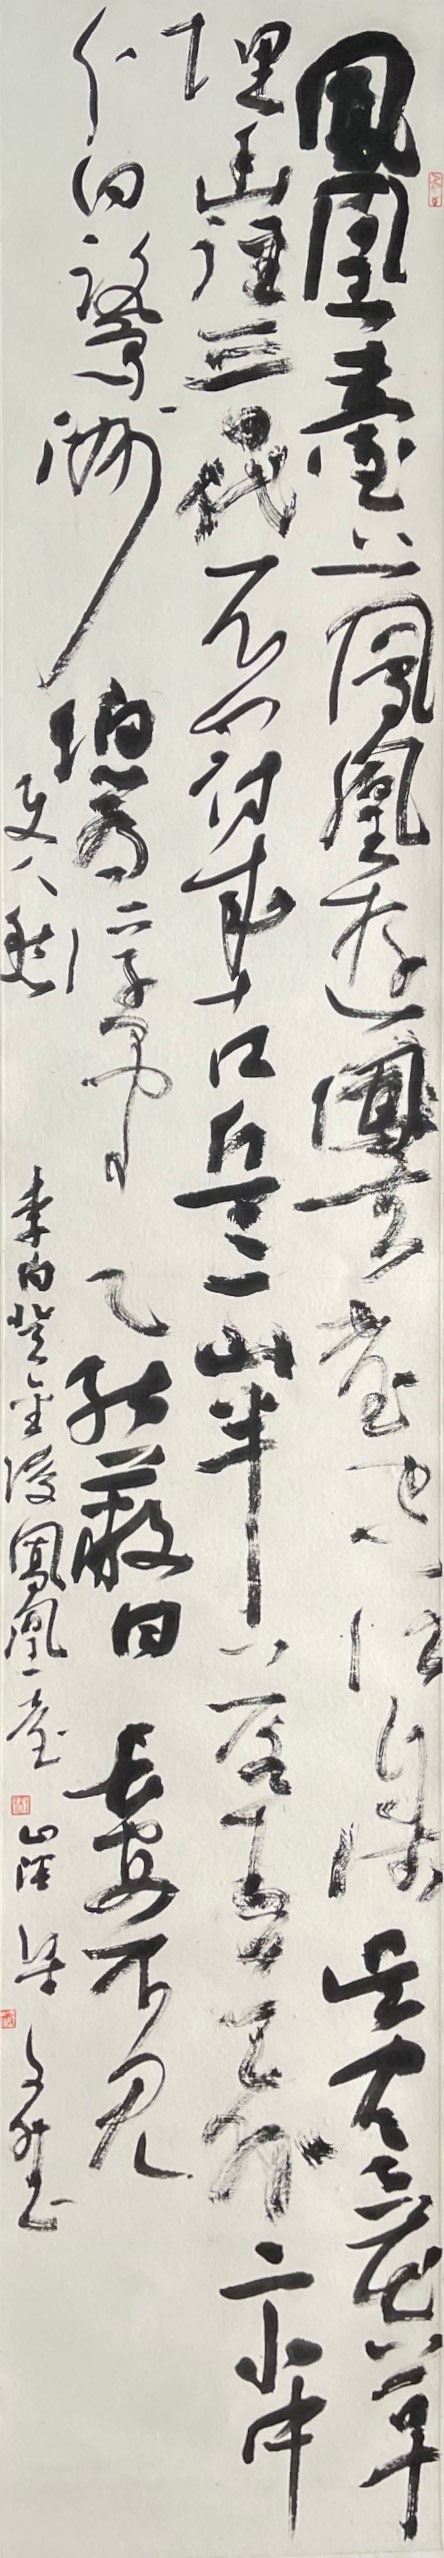 鳳凰臺上鳳凰遊鳳去臺空江自流吳宮花草
埋幽徑晉代衣冠成古丘三山半落青天外二水中
分白鷺洲總為浮雲能蔽日長安不見
使人愁 李白登金陵鳳凰臺